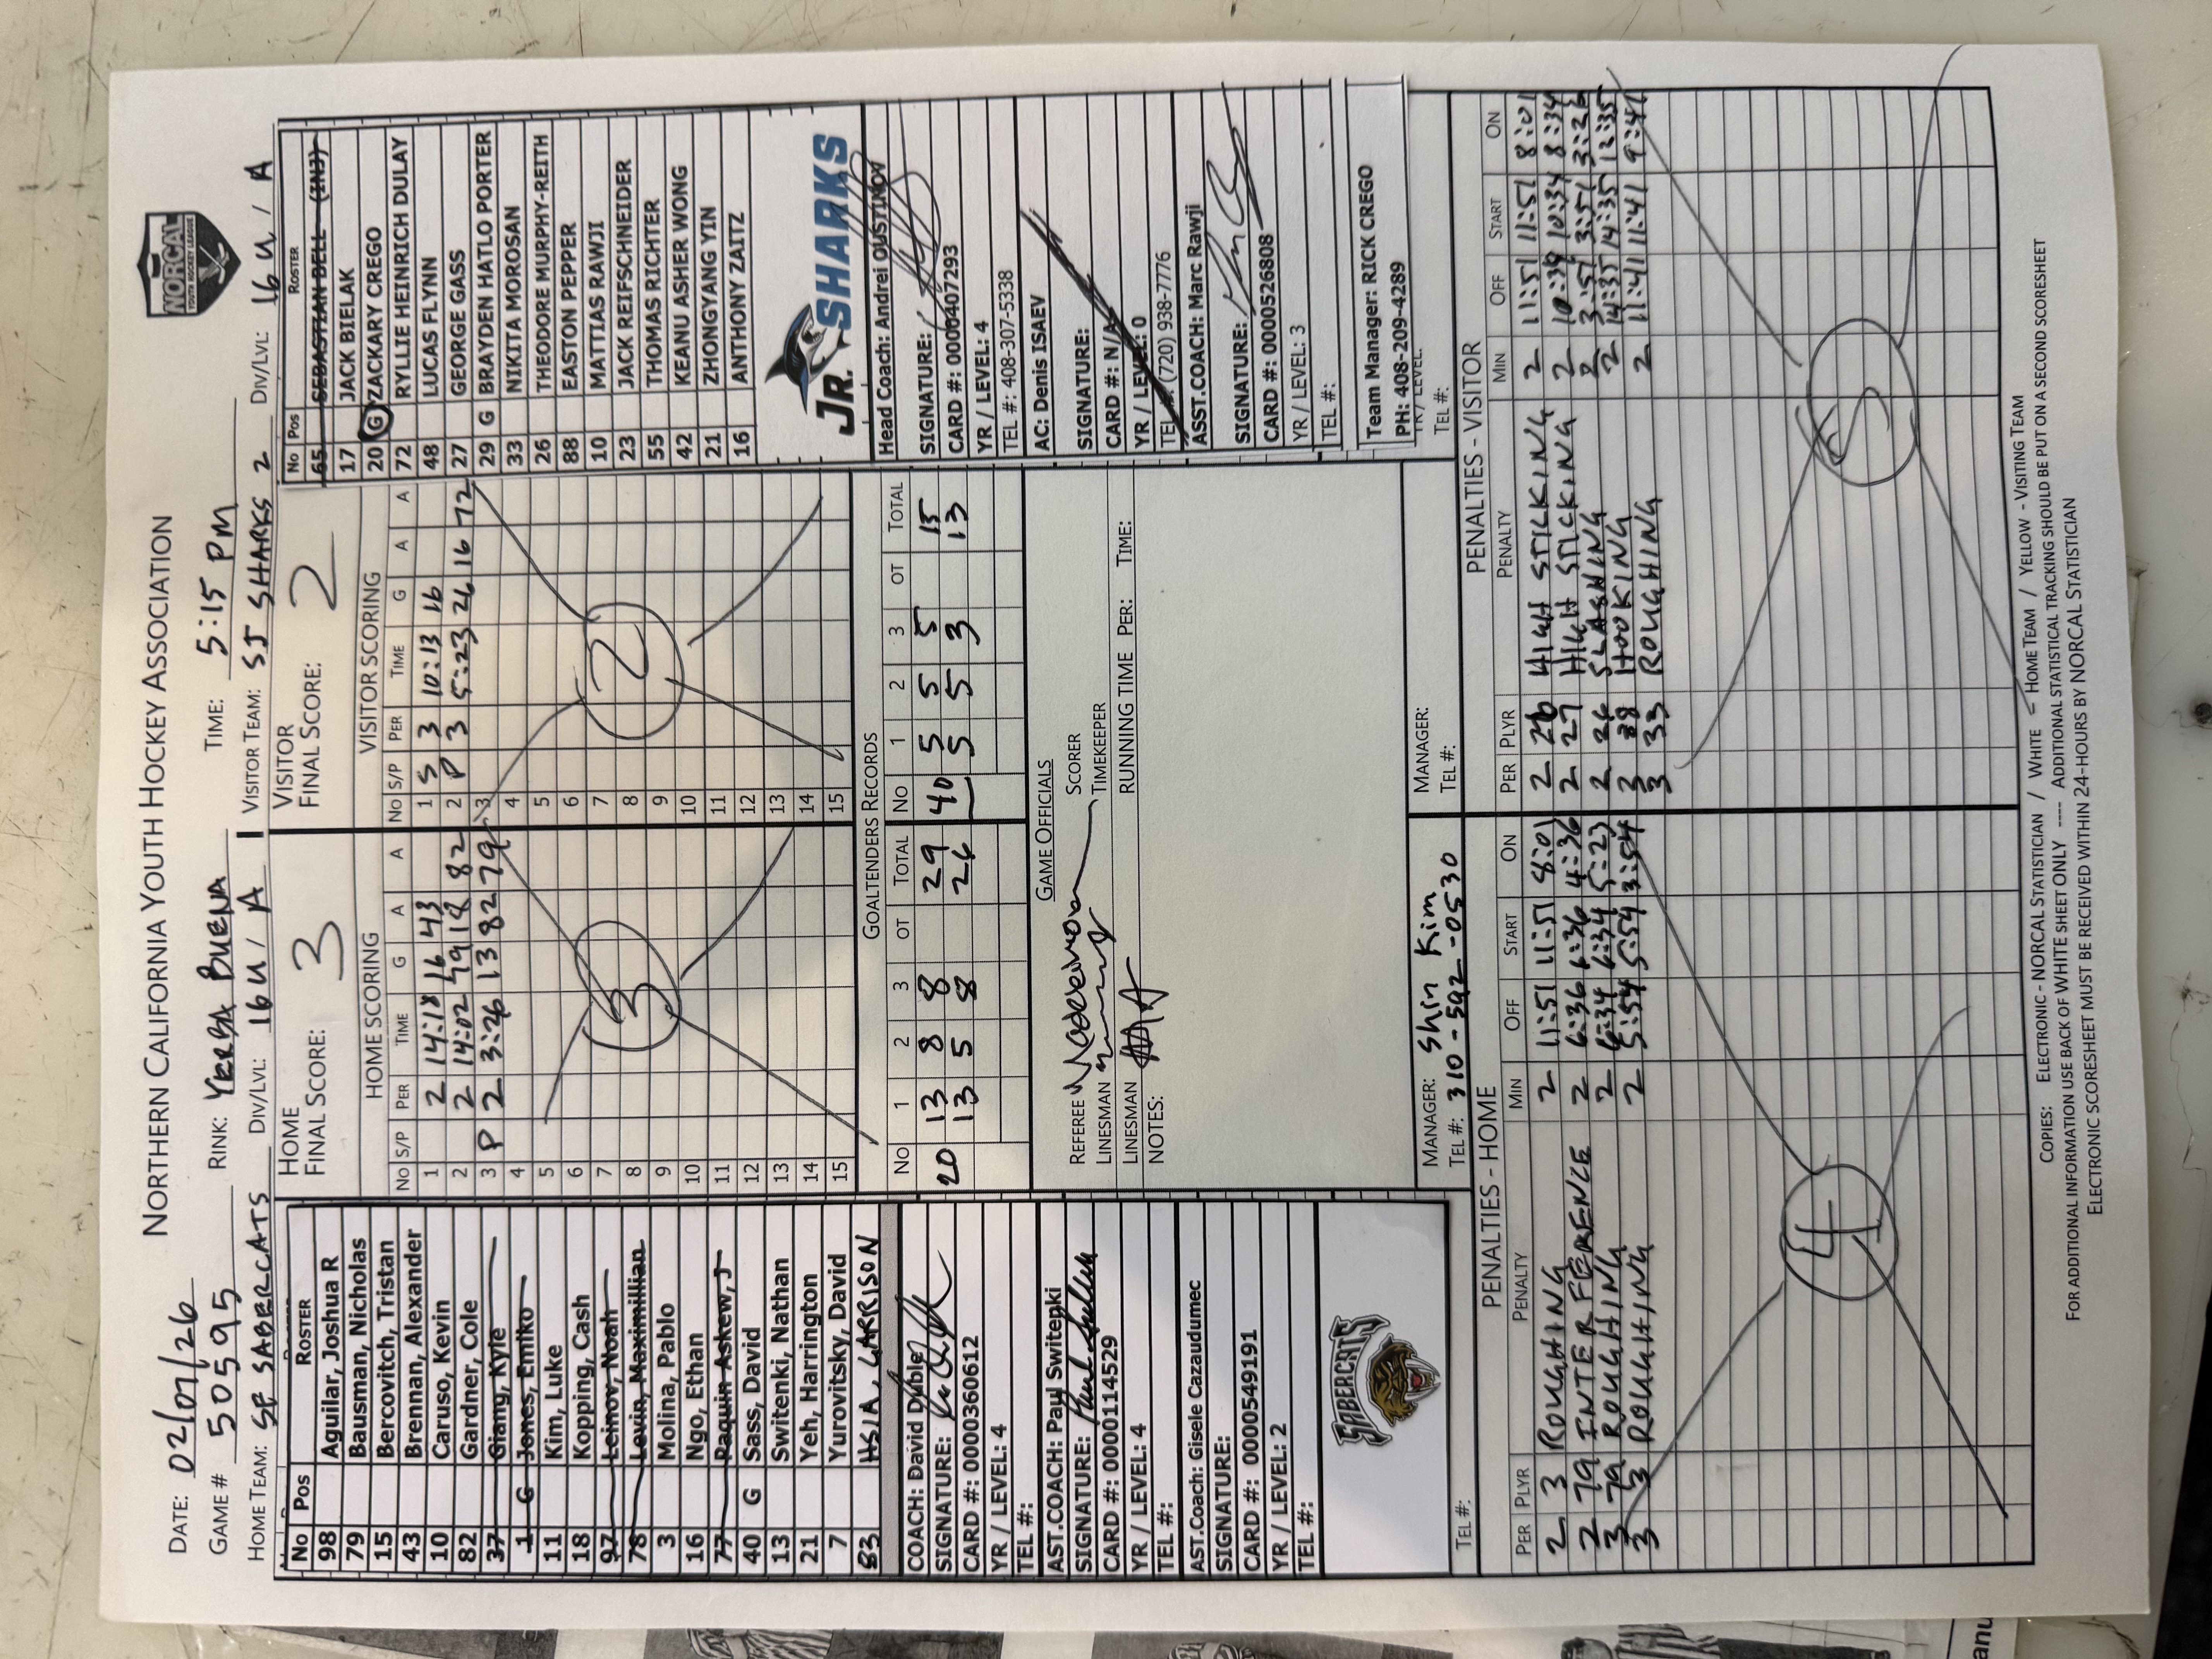 NORTHERN CALIFORNIA YOUTH HOCKEY ASSOCIATION
NORCAL
YOUTH HOCKEY LEAGUE
DATE: 02/01/26 RINK: YERBA BUENA TIME: 5:15 PM
GAME # 50595
HOME TEAM: SF SABERCATS DIV/LVL: 16U / A VISITOR TEAM: SJ SHARKS 2 DIV/LVL: 16U / A
No Pos ROSTER
98 Aguilar, Joshua R
79 Bausman, Nicholas
15 Bercovitch, Tristan
43 Brennan, Alexander
10 Caruso, Kevin
82 Gardner, Cole
37 Giang, Kyle
1 G Jones, Emiko
11 Kim, Luke
18 Kopping, Cash
97 Leinov, Noah
78 Levin, Maximilian
3 Molina, Pablo
16 Ngo, Ethan
77 Paquin Askew, J
40 G Sass, David
13 Switenki, Nathan
21 Yeh, Harrington
7 Yurovitsky, David
83 HSIA, GARRISON
COACH: David Dubler
SIGNATURE:
CARD #: 0000360612
YR / LEVEL: 4
TEL #:
AST.COACH: Paul Switenki
SIGNATURE:
CARD #: 0000114529
YR / LEVEL: 4
TEL #:
AST.Coach: Gisele Cazaudumec
SIGNATURE:
CARD #: 0000549191
YR / LEVEL: 2
TEL #:
SABERCATS
TEL #:
HOME
FINAL SCORE: 3
HOME SCORING
NO S/P PER TIME G A A
1 2 14:18 16 43
2 2 14:02 79 18 82
3 P 2 3:26 13 82 79
4
5
6
7
8
9
10
11
12
13
14
15
3
VISITOR
FINAL SCORE: 2
VISITOR SCORING
NO S/P PER TIME G A A
1 S 3 10:13 16
2 P 3 5:23 26 16 72
3
4
5
6
7
8
9
10
11
12
13
14
15
2
GOALTENDERS RECORDS
NO 1 2 3 OT TOTAL NO 1 2 3 OT TOTAL
20 13 8 8 29 40 5 5 5 15
13 5 8 26 5 5 3 13
GAME OFFICIALS
REFEREE SCORER
LINESMAN TIMEKEEPER
LINESMAN RUNNING TIME PER: TIME:
NOTES:
MANAGER: Shin Kim
TEL #: 310-592-0530
MANAGER:
TEL #:
No Pos ROSTER
65 SEBASTIAN BELL (INJ)
17 JACK BIELAK
20 G ZACKARY CREGO
72 RYLLIE HEINRICH DULAY
48 LUCAS FLYNN
27 GEORGE GASS
29 G BRAYDEN HATLO PORTER
33 NIKITA MOROSAN
26 THEODORE MURPHY-REITH
88 EASTON PEPPER
10 MATTIAS RAWJI
23 JACK REIFSCHNEIDER
55 THOMAS RICHTER
42 KEANU ASHER WONG
21 ZHONGYANG YIN
16 ANTHONY ZAITZ
JR. SHARKS
Head Coach: Andrei OUSTINOV
SIGNATURE:
CARD #: 0000407293
YR / LEVEL: 4
TEL #: 408-307-5338
AC: Denis ISAEV
SIGNATURE:
CARD #: N/A
YR / LEVEL: 0
TEL #: (720) 938-7776
ASST.COACH: Marc Rawji
SIGNATURE:
CARD #: 0000526808
YR / LEVEL: 3
TEL #:
Team Manager: RICK CREGO
PH: 408-209-4289
YR / LEVEL:
TEL #:
PENALTIES - HOME
PER PLYR PENALTY MIN OFF START ON
2 3 ROUGHING 2 11:51 11:51 8:01
2 79 INTERFERENCE 2 6:36 6:36 4:36
3 79 ROUGHING 2 6:34 6:34 5:23
3 3 ROUGHING 2 5:54 5:54 3:54
4
PENALTIES - VISITOR
PER PLYR PENALTY MIN OFF START ON
2 26 HIGH STICKING 2 11:51 11:51 8:01
2 27 HIGH STICKING 2 10:34 10:34 8:34
2 26 SLASHING 2 3:51 3:51 3:26
3 88 HOOKING 2 14:35 14:35 12:35
3 33 ROUGHING 2 11:41 11:41 9:41
5
COPIES: ELECTRONIC - NORCAL STATISTICIAN / WHITE - HOME TEAM / YELLOW - VISITING TEAM
FOR ADDITIONAL INFORMATION USE BACK OF WHITE SHEET ONLY ---- ADDITIONAL STATISTICAL TRACKING SHOULD BE PUT ON A SECOND SCORESHEET
ELECTRONIC SCORESHEET MUST BE RECEIVED WITHIN 24-HOURS BY NORCAL STATISTICIAN